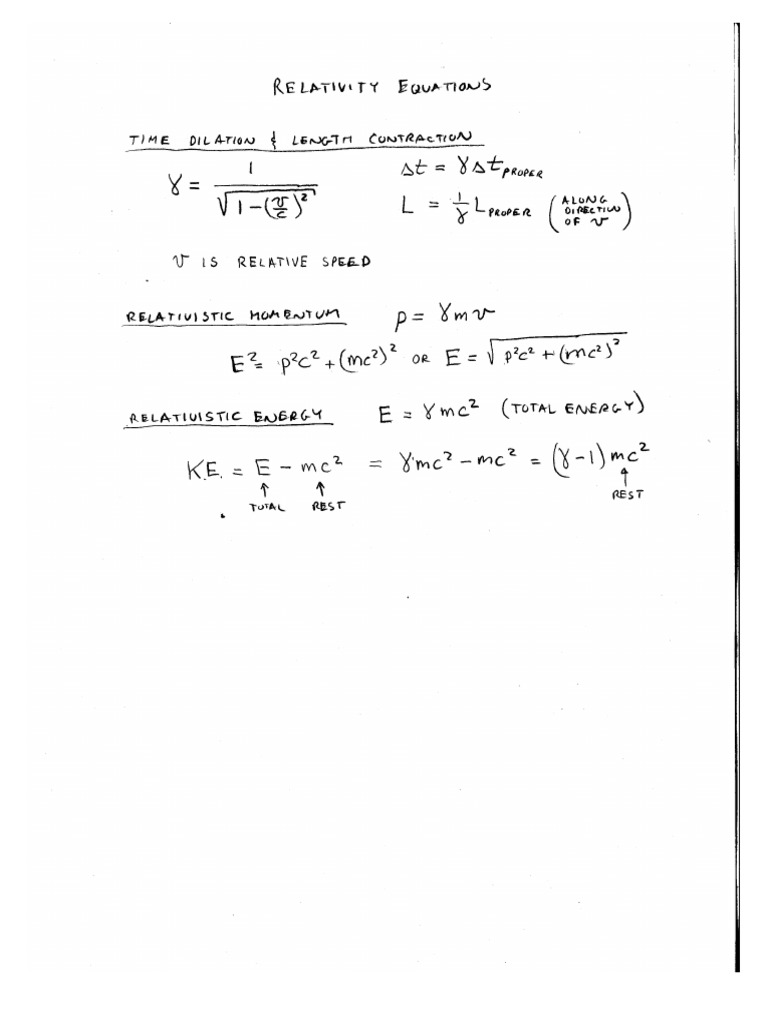 RELATIVITY EQUATIONS
TIME DILATION & LENGTH CONTRACTION
γ = 1 / √(1-(v/c)²)
Δt = γΔt PROPER
L = 1/γ L PROPER (ALONG DIRECTION OF v)
v IS RELATIVE SPEED
RELATIVISTIC MOMENTUM p = γmv
E² = p²c² + (mc²)² OR E = √(p²c² + (mc²)²)
RELATIVISTIC ENERGY E = γmc² (TOTAL ENERGY)
K.E. = E - mc² = γmc² - mc² = (γ-1)mc²
↑ ↑ ↑
TOTAL REST REST